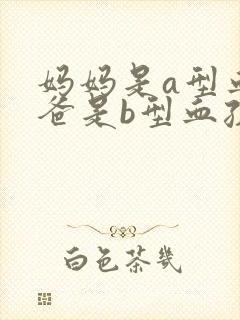 妈妈是a型血
爸是b型血孩
白色茶几